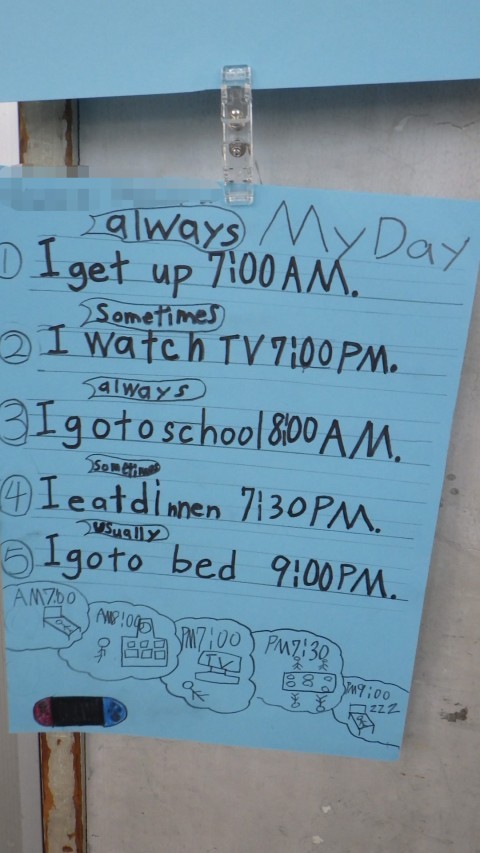 My Day
always
① I get up 7:00 AM.
Sometimes
② I watch TV 7:00 PM.
always
③ I go to school 8:00 AM.
sometimes
④ I eat dinnen 7:30 PM.
usually
⑤ I go to bed 9:00 PM.
AM7:00
AM8:00
PM7:00
TV
PM7:30
PM9:00
zzz